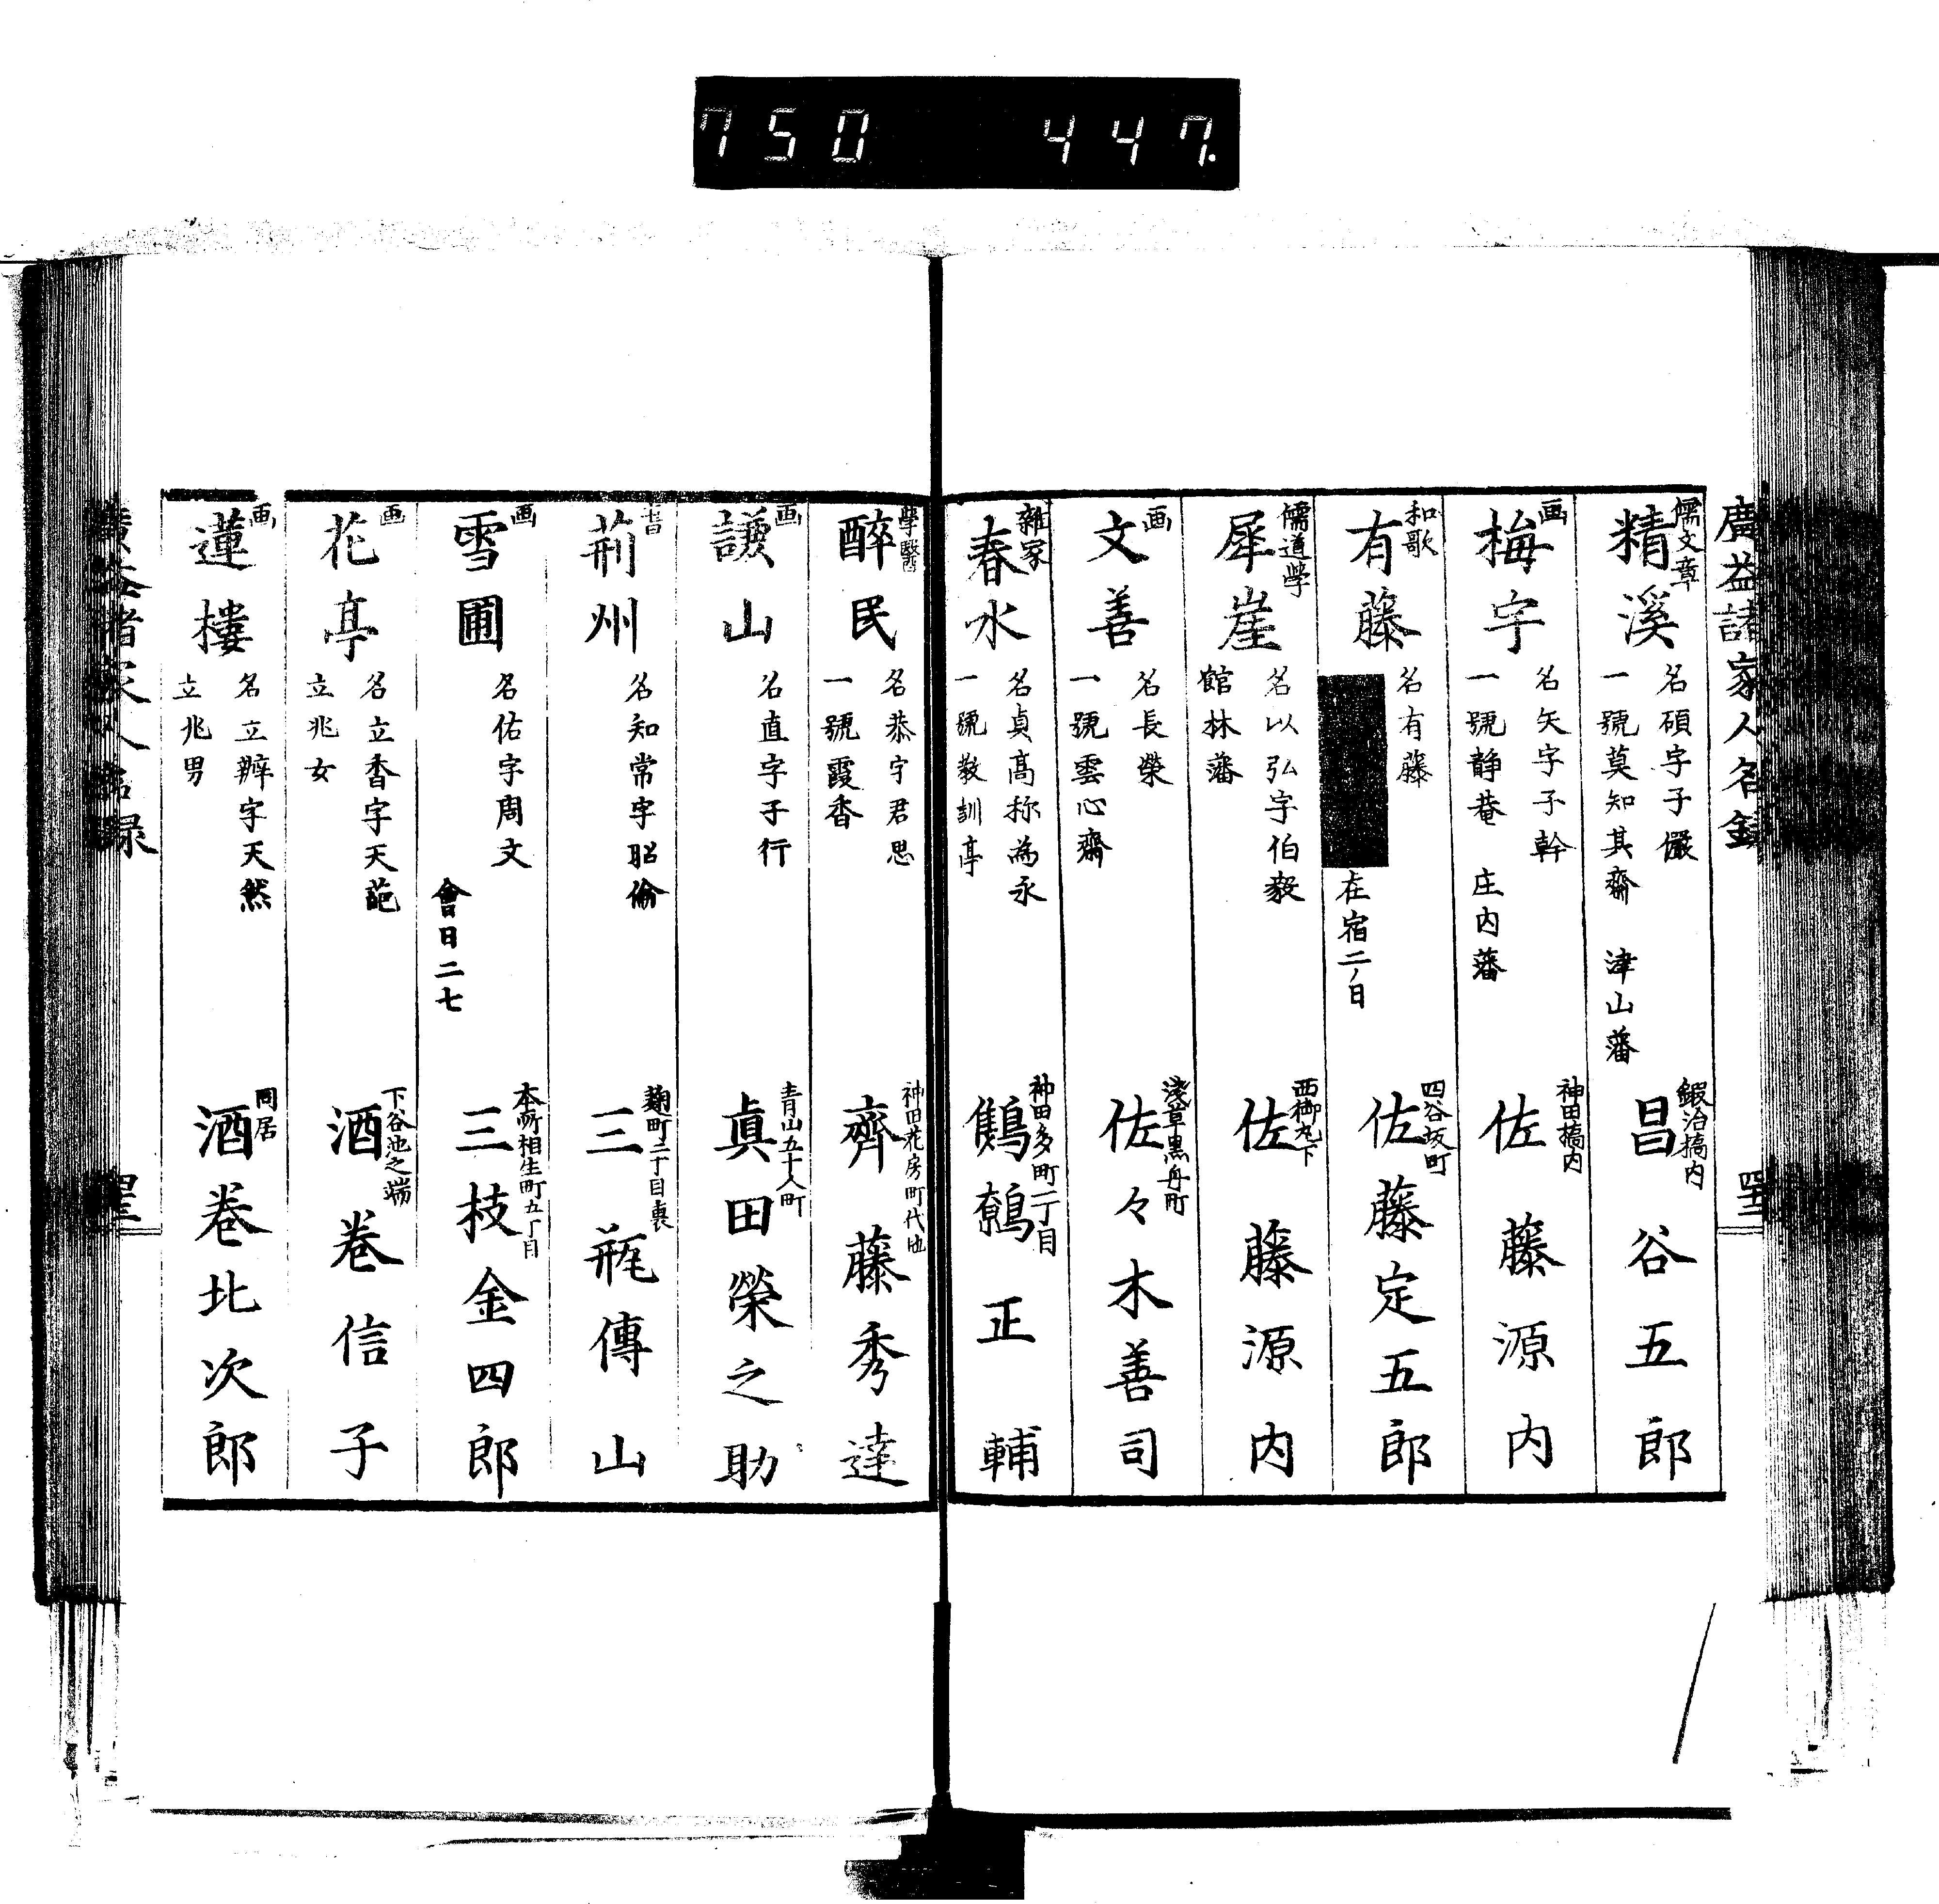 750 447.
廣益諸家人名録
四十三
儒文章
精溪
名碩字子儼
一號莫知其齋 津山藩
鍜冶橋内
昌谷五郎
画
梅宇
名矢字子幹
一號静菴 庄内藩
神田橋内
佐藤源内
和歌
有藤
名有藤
在宿二ノ日
四谷坂町
佐藤定五郎
儒道學
犀崖
名以弘字伯毅
館林藩
西御丸下
佐藤源内
画
文善
名長榮
一號雲心齋
淺草黒舟町
佐々木善司
雜家
春水
名貞高称為永
一號教訓亭
神田多町一丁目
鷦鷯正輔
學醫
醉民
名恭字君思
一號霞香
神田花房町代地
齊藤秀達
画
謙山
名直字子行
青山五十人町
眞田榮之助
書
荊州
名知常字昭倫
麹町二丁目裏
三瓶傳山
画
雪圃
名佑字周文
會日二七
本所相生町五丁目
三枝金四郎
画
花亭
名立香字天葩
立兆女
下谷池之端
酒巻信子
画
蓮樓
名立辨字天然
立兆男
同居
酒巻北次郎
廣益諸家人名録